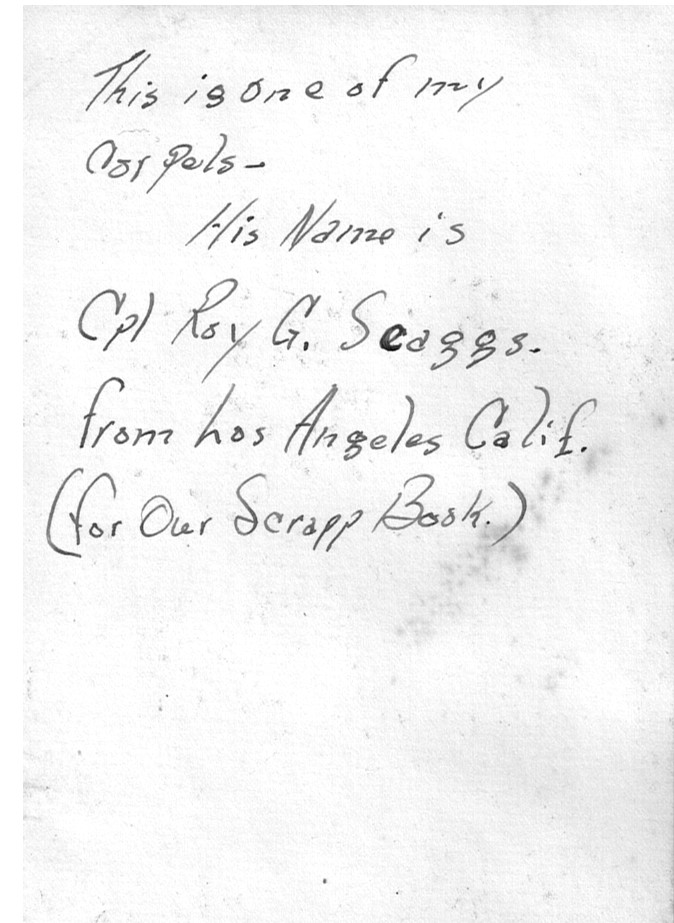 This is one of my
Corpels-
His Name is
Cpl Roy G. Scaggs.
from Los Angeles Calif.
(for Our Scrapp Book.)